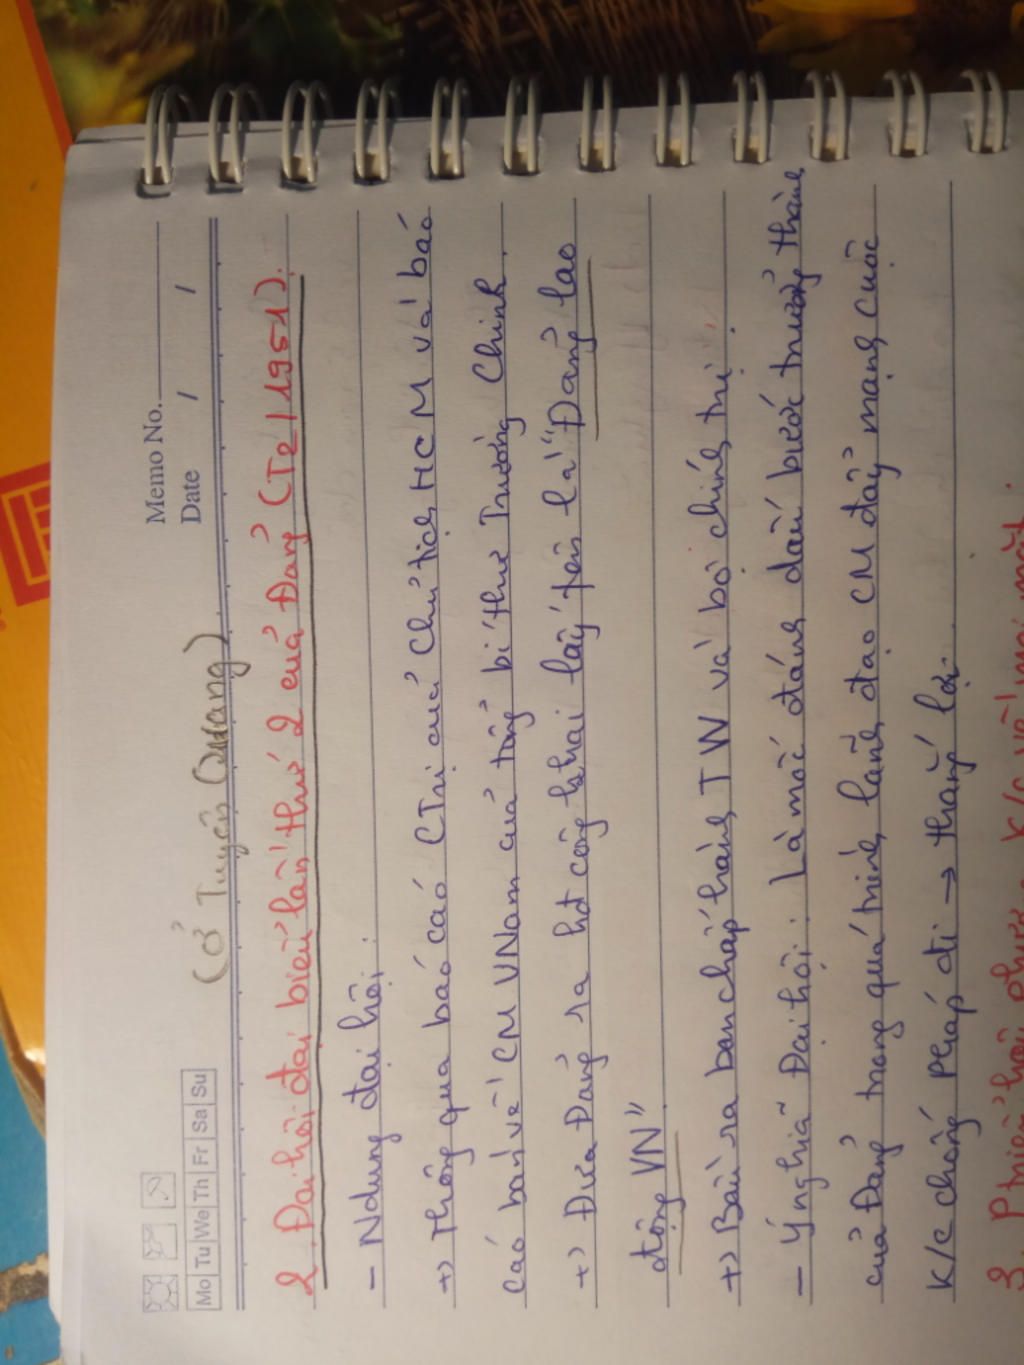 Memo No.
Mo Tu We Th Fr Sa Su
Date / /
(Ở Tuyên Quang)
2. Đại hội đại biểu lần thứ 2 của Đảng (T2/1951).
- Ndung đại hội:
+) Thông qua báo cáo CTrị của Chủ tịch HCM và báo
cáo bàn về CM VNam của tổng bí thư Trường Chinh.
+) Đưa Đảng ra hđ công khai lấy tên là "Đảng lao
động VN"
+) Bầu ra ban chấp hành TW và bộ chính trị.
- Ý nghĩa Đại hội: Là mốc đánh dấu bước trưởng thành
của Đảng trong quá trình lãnh đạo CM đẩy mạng cuộc
K/c chống Pháp đi → thắng lợi.
3. Phiền hội phục K/c về mọi mặt.